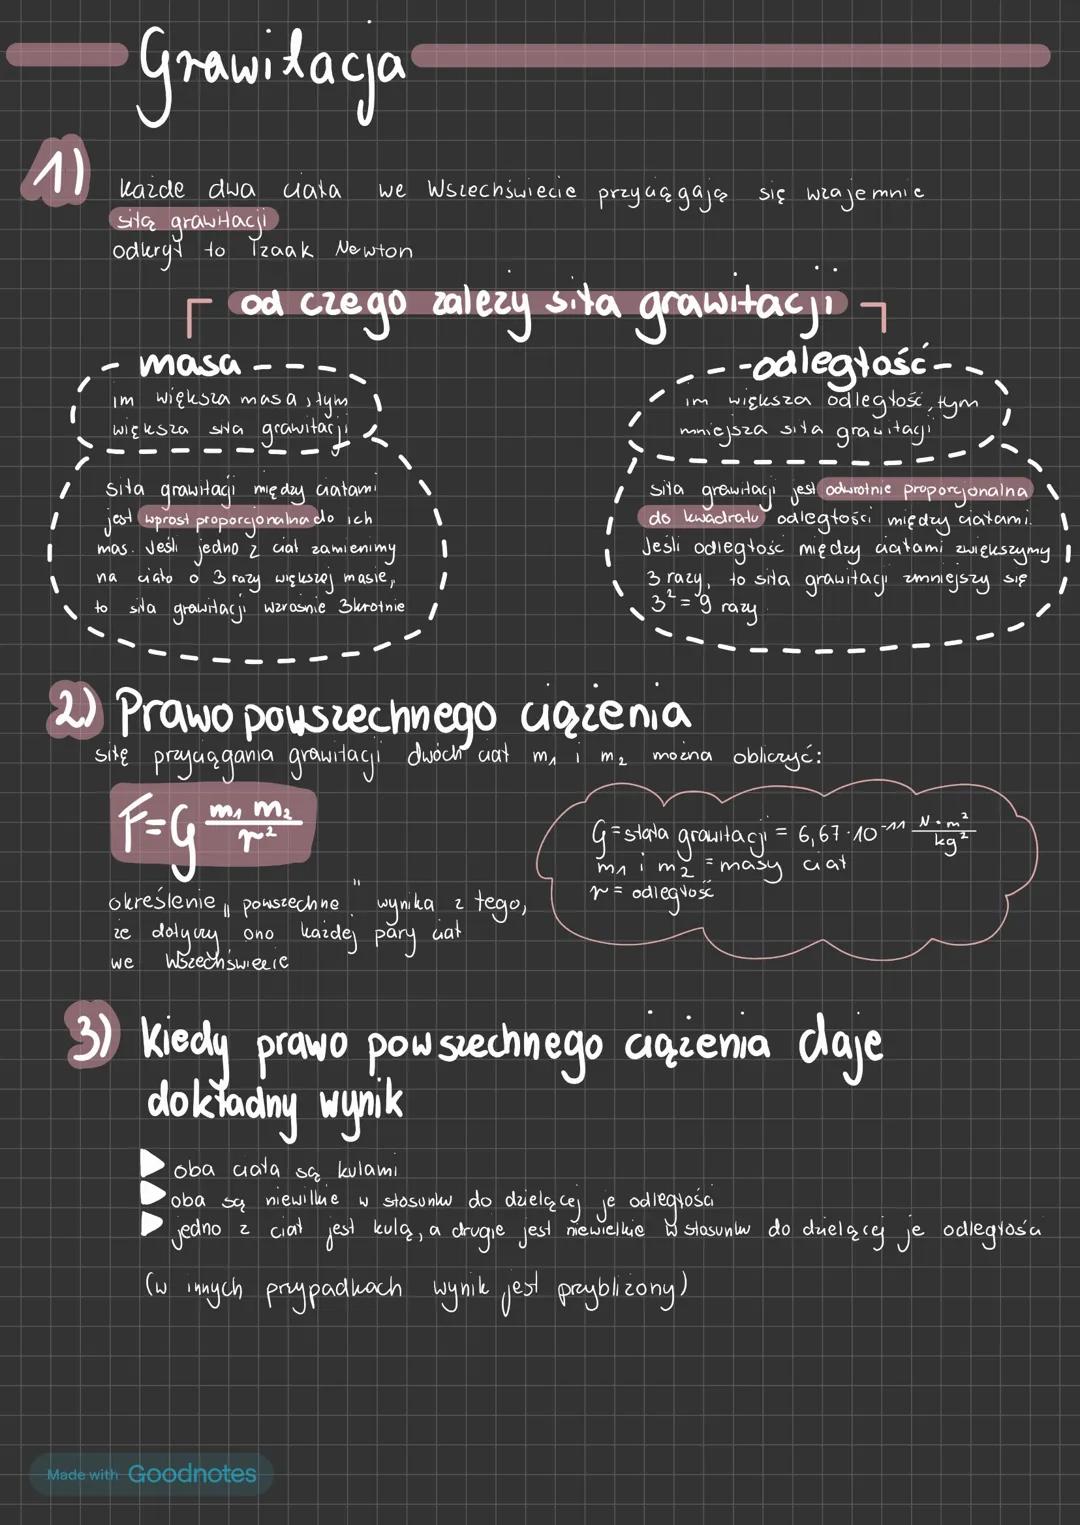 Grawitacja
1)
każde dwa ciała we Wszechświecie przyciągają się wzajemnie
siłą grawitacji
odkrył to Izaak Newton
od czego zależy siła grawitacji
masa
im większa masa, tym
większa siła grawitacji
siła grawitacji między ciałami
jest wprost proporcjonalna do ich
mas. Jeśli jedno z ciał zamienimy
na ciało o 3 razy większej masie,
to siła grawitacji wzrośnie 3krotnie
odległość
im większa odległość, tym
mniejsza siła grawitacji
siła grawitacji jest odwrotnie proporcjonalna
do kwadratu odległości między ciałami.
Jeśli odległość między ciałami zwiększymy
3 razy, to siła grawitacji zmniejszy się
3² = 9 razy
2) Prawo powszechnego ciążenia
siłę przyciągania grawitacji dwóch ciał m₁ i m₂ można obliczyć:
F=G m₁ m₂ / r²
G = stała grawitacji = 6,67·10⁻¹¹ N·m²/kg²
m₁ i m₂ = masy ciał
r = odległość
określenie „powszechne" wynika z tego,
że dotyczy ono każdej pary ciał
we Wszechświecie
3) Kiedy prawo powszechnego ciążenia daje
dokładny wynik
▶ oba ciała są kulami
▶ oba są niewilkie w stosunku do dzielącej je odległości
▶ jedno z ciał jest kulą, a drugie jest niewielkie w stosunku do dzielącej je odległości
(w innych przypadkach wynik jest przybliżony)
Made with Goodnotes